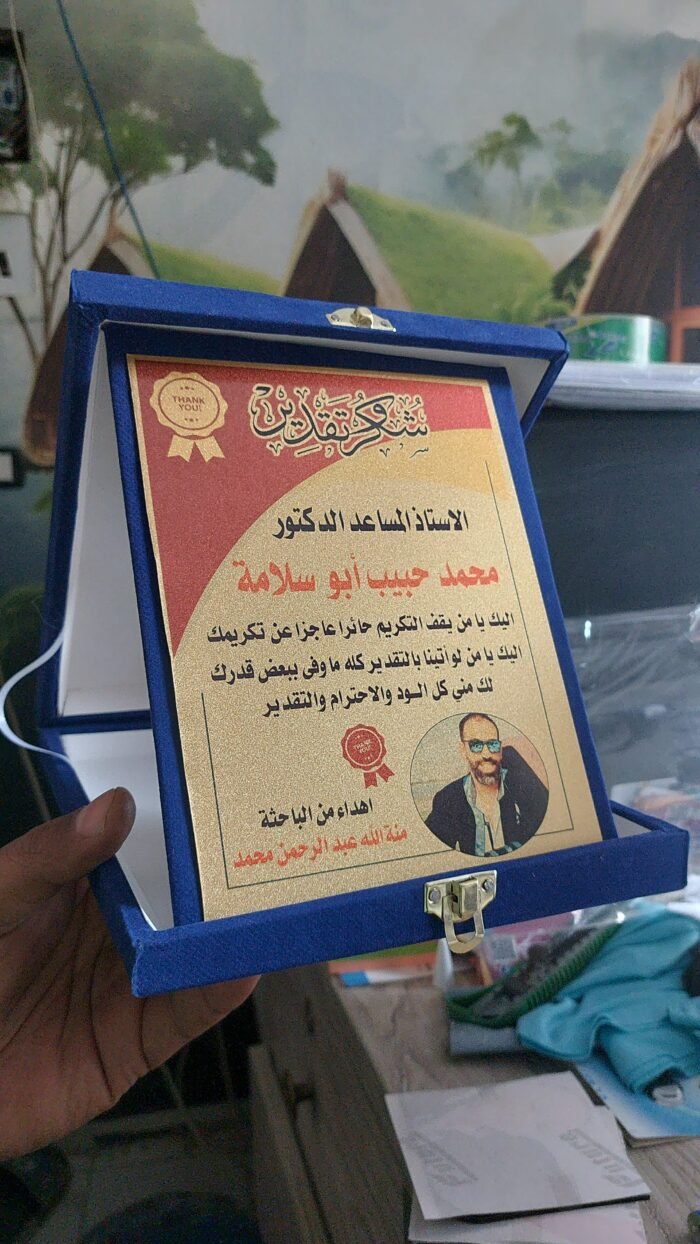 THANK
YOU!
شكر وتقدير
الاستاذ المساعد الدكتور
محمد حبيب أبو سلامة
اليك يا من يقف التكريم حائرا عاجزا عن تكريمك
اليك يا من لو أتينا بالتقدير كله ما وفى ببعض قدرك
لك مني كل الود والاحترام والتقدير
THANK
YOU!
اهداء من الباحثة
منة الله عبد الرحمن محمد
Future